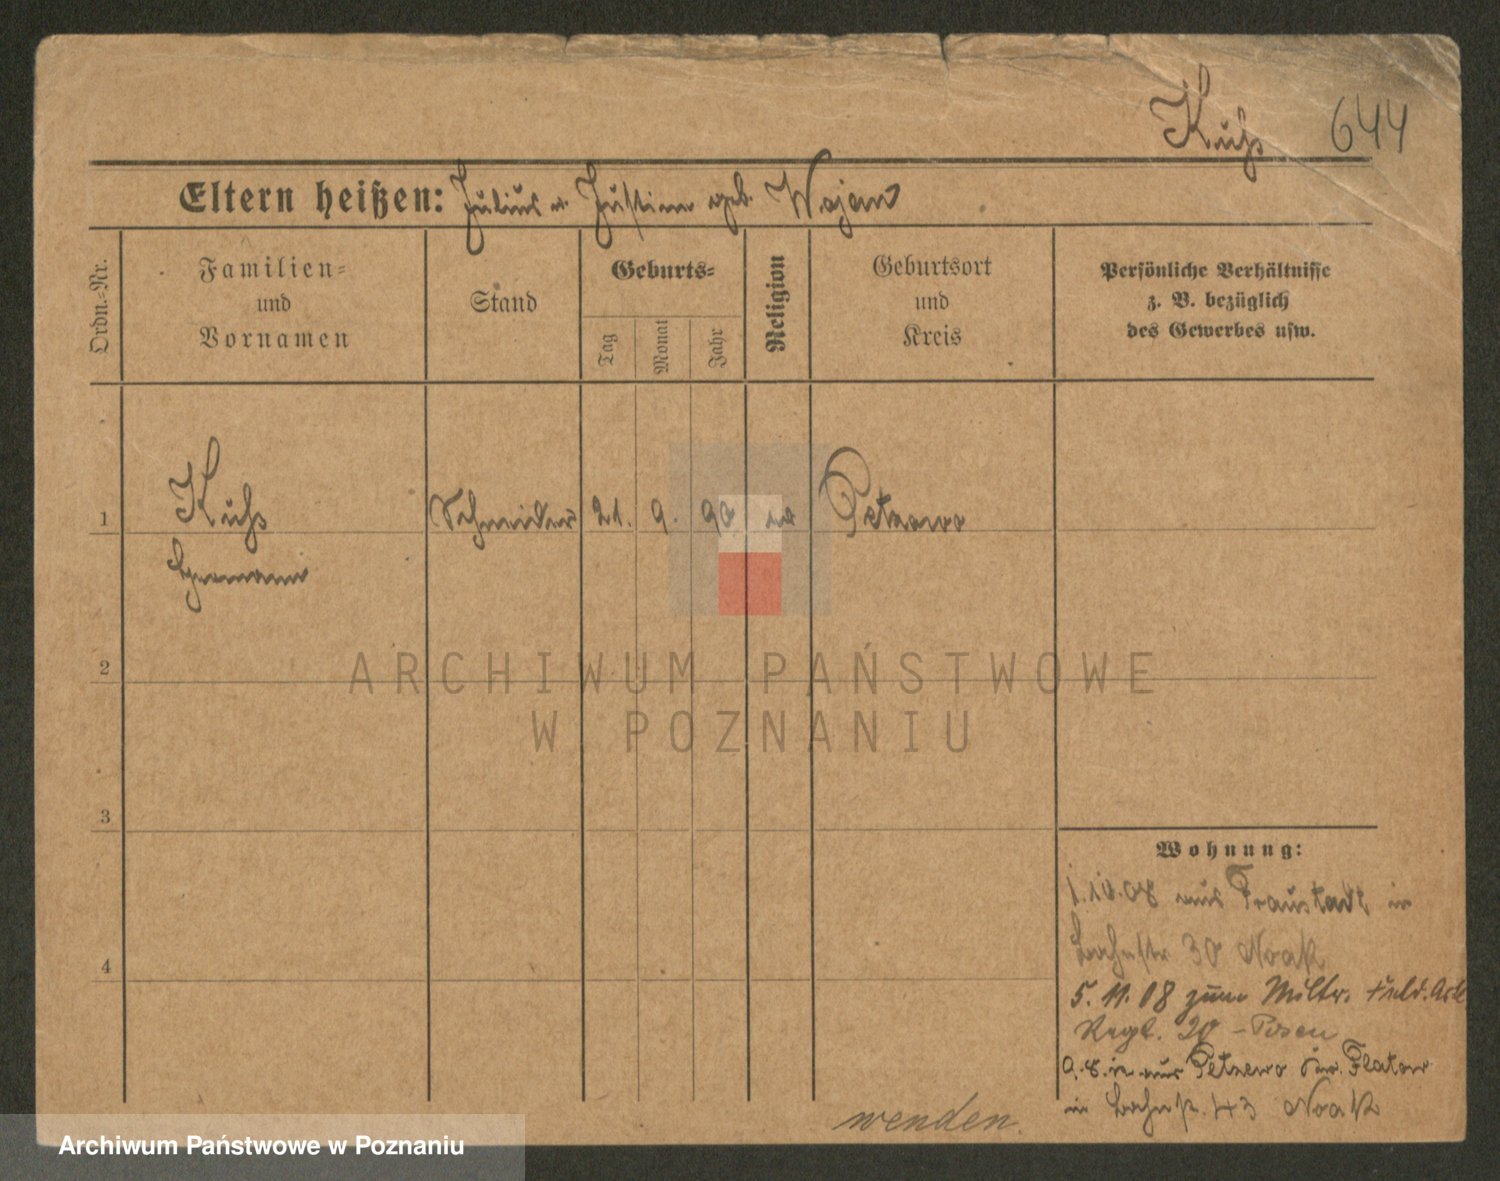 Kuhs 644
Eltern heißen: Julius u. Justine geb. Wojan
Ordn.-Nr.
Familien-
und
Vornamen
Stand
Geburts-
Tag
Monat
Jahr
Religion
Geburtsort
und
Kreis
Persönliche Verhältnisse
z. B. bezüglich
des Gewerbes usw.
1 Kuhs Schneider 21. 9. 90 Petzewo
Hermann
2
3
4
Wohnung:
1.10.08 aus Fraustadt in
Bahnstr 30 Noak
5. 11. 08 zum Militr. Feld. Art.
Regt. 20 - Posen
aus Petzewo Kr. Flatow
in Bahnstr. 43 Noak
wenden.
ARCHIWUM PAŃSTWOWE
W POZNANIU
Archiwum Państwowe w Poznaniu